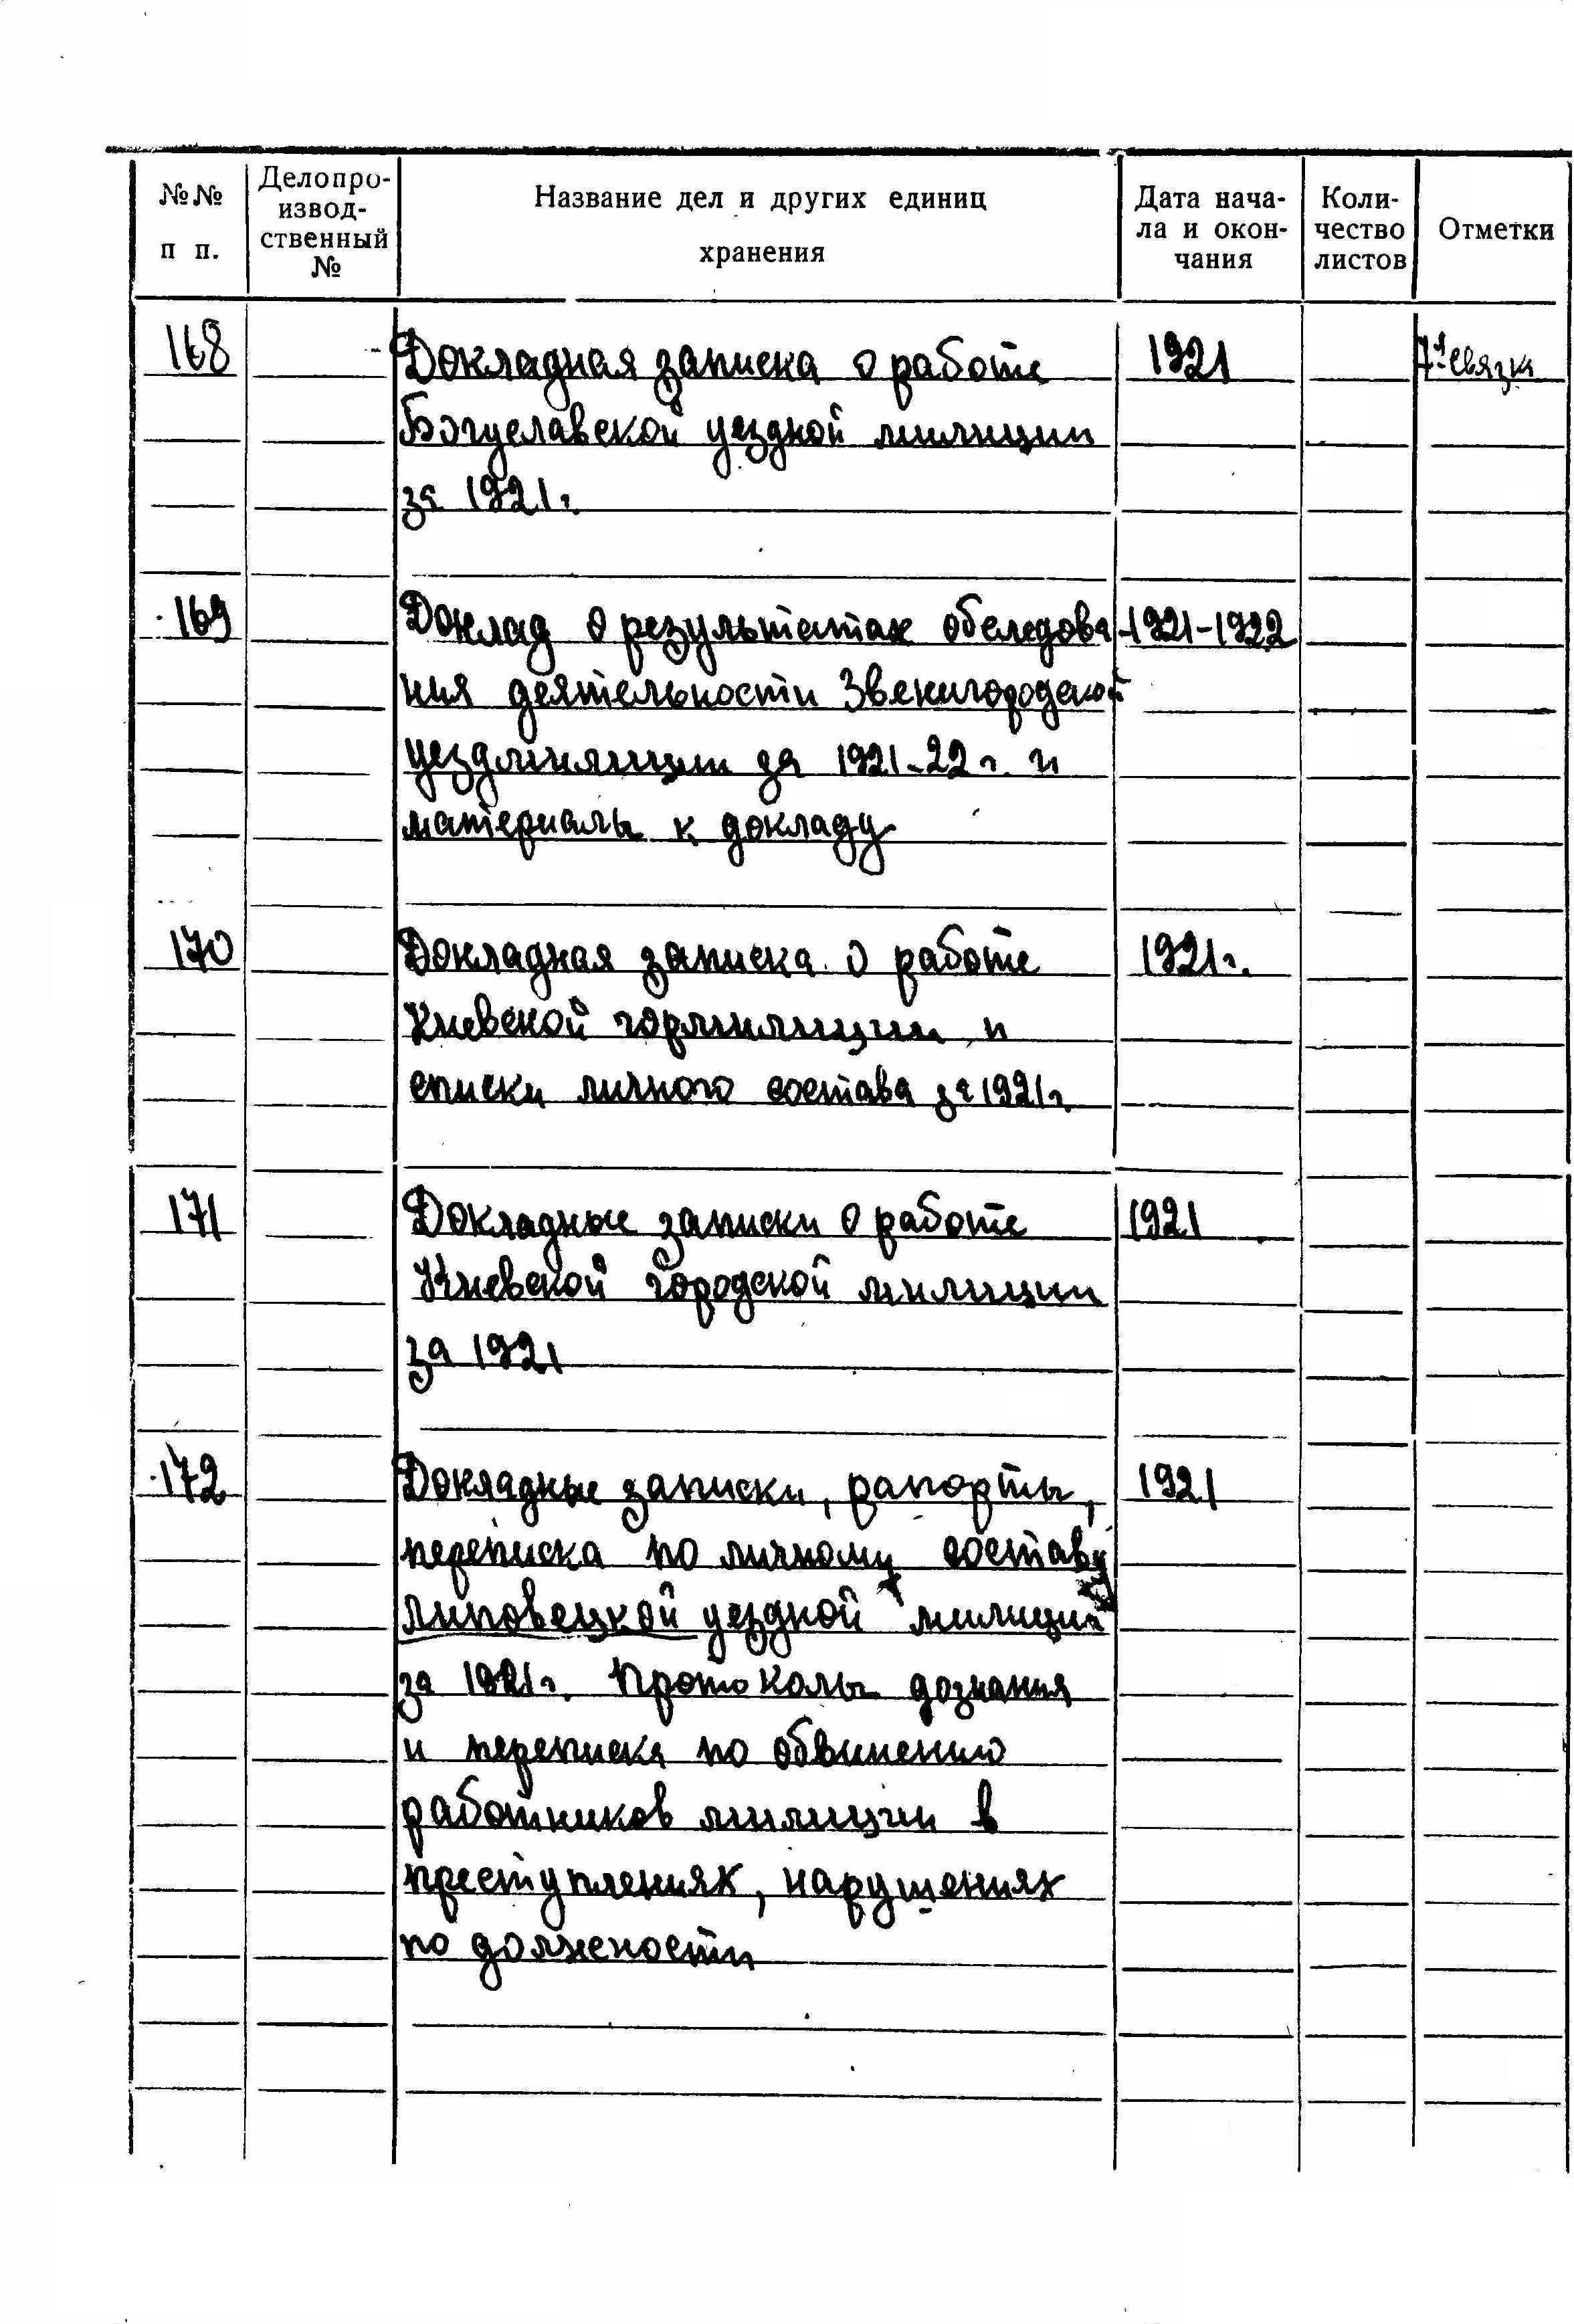 №№ п п.
Делопро-
извод-
ственный
№
Название дел и других единиц
хранения
Дата нача-
ла и окон-
чания
Коли-
чество
листов
Отметки
168 Докладная записка о работе 1921 7-я связка
Богуславской уездной милиции
за 1921 г.
169 Доклад о результатах обследова 1921-1922
ния деятельности Звенигородской
уездмилиции за 1921-22 г. и
материалы к докладу
170 Докладная записка о работе 1921 г.
Киевской гормилиции и
списки личного состава за 1921 г.
171 Докладные записки о работе 1921
Киевской городской милиции
за 1921
172 Докладные записки, рапорты, 1921
переписка по личному составу
Липовецкой уездной милиции
за 1921 г. Протоколы дознания
и переписка по обвинению
работников милиции в
преступлениях, нарушениях
по должености